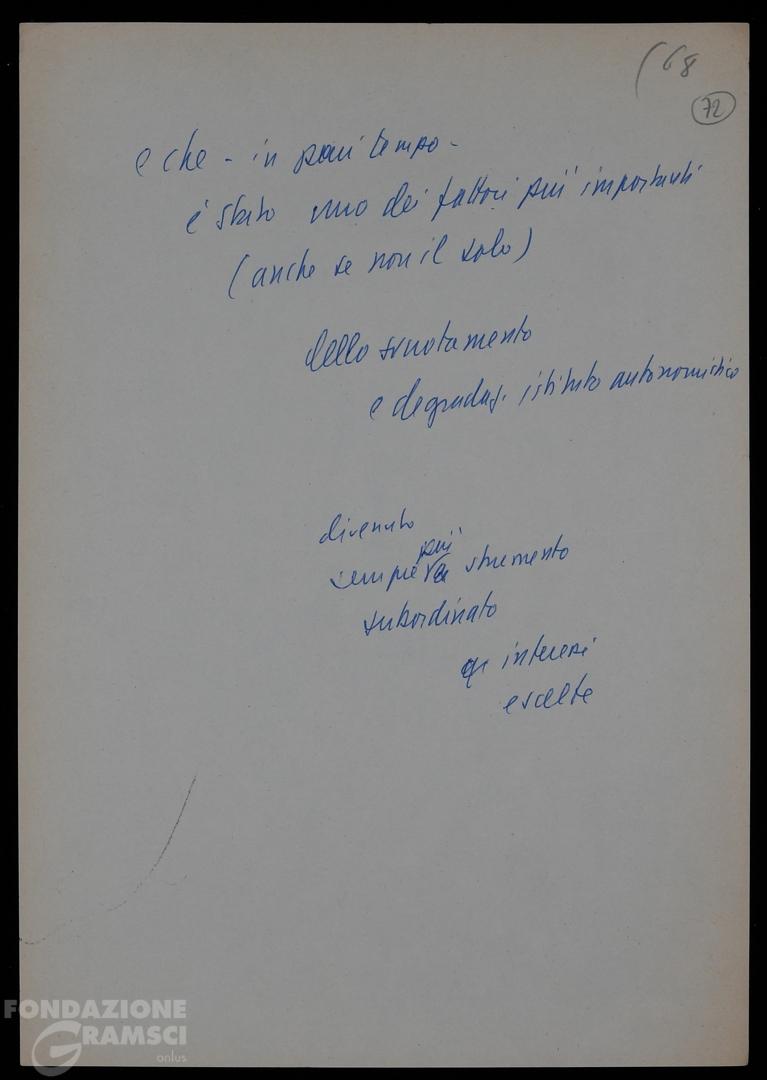 (68
72
e che - in pari tempo -
è stato uno dei fattori più importanti
(anche se non il solo)
dello svuotamento
e degradaz. istituto autonomistico
divenuto
più
sempre strumento
subordinato
interessi
e scelte
FONDAZIONE
GRAMSCI
onlus